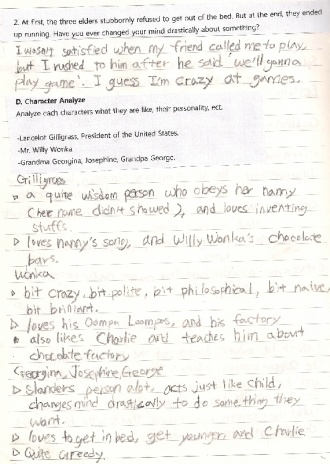 2. At first, the three elders stubbornly refused to get out of the bed. But at the end, they ended
up running. Have you ever changed your mind drastically about something?
I wasn't satisfied when my friend called me to play
but I rushed to him after he said 'we'll gonna
play game'. I guess I'm crazy at games.
D. Character Analyze
Analyze each characters what they are like, their personality, ect.
-Lancelot Gilligrass, President of the United States.
-Mr. Willy Wonka
-Grandma Georgina, Josephine, Grandpa George.
Gilligrass
a quite wisdom person who obeys her nanny
(her name didn't showed), and loves inventing
stuffs.
loves nanny's song, and Willy Wonka's chocolate
bars.
Wonka
bit crazy, bit polite, bit philosophical, bit naive,
bit brilliant.
loves his Oompa Loompas, and his factory
also likes Charlie and teaches him about
chocolate factory
Georgina, Josephine, George
Slanders person alot, acts just like child,
changes mind drastically to do something they
want.
loves to get in bed, get younger, and Charlie
Quite greedy.